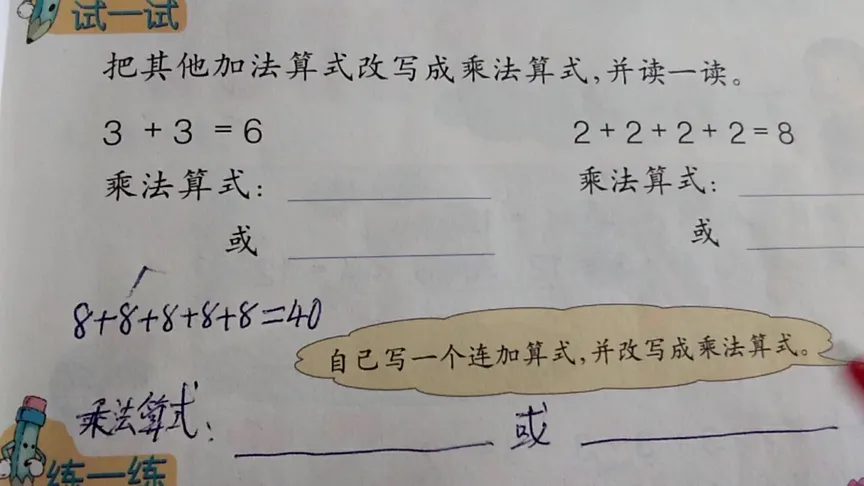 试一试
把其他加法算式改写成乘法算式，并读一读。
3 + 3 = 6
2 + 2 + 2 + 2 = 8
乘法算式：
乘法算式：
或
或
8+8+8+8+8=40
自己写一个连加算式，并改写成乘法算式。
乘法算式：
或
练一练